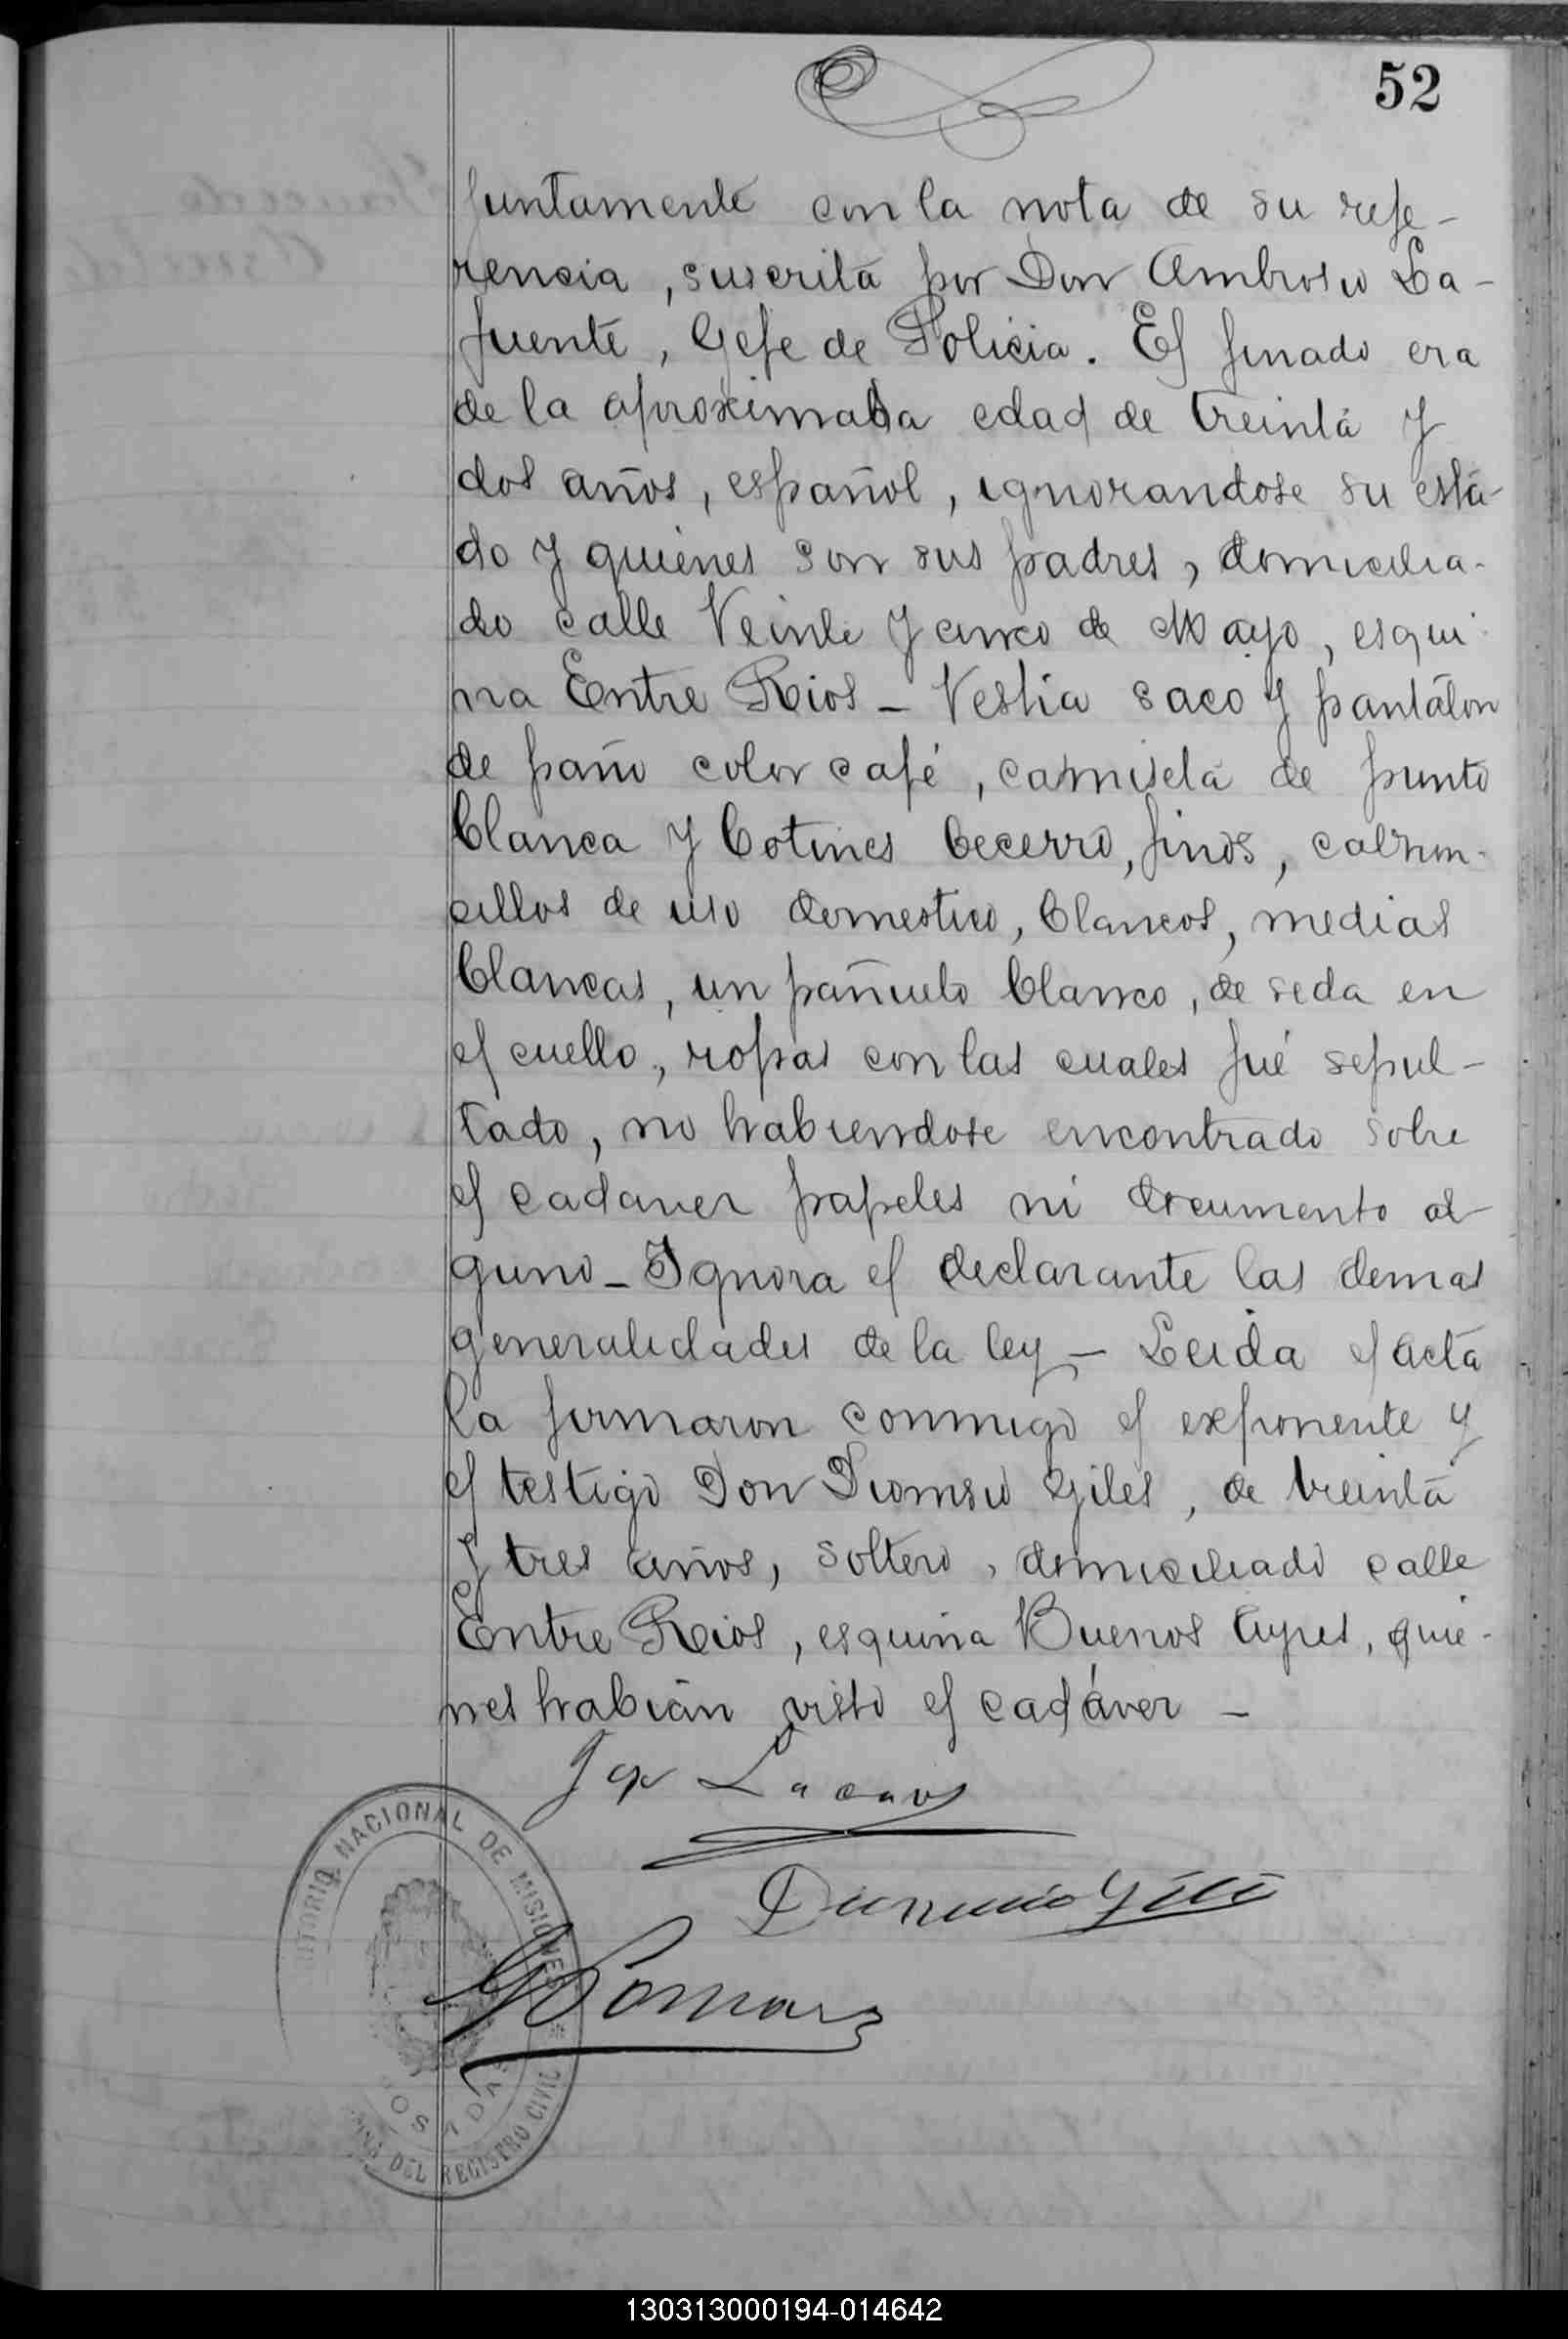 52
juntamente con la nota de su refe-
rencia, suscrita por Don Ambrosio La-
fuente, Gefe de Policia. El finado era
de la aproximada edad de treinta y
dos años, español, ignorandose su esta-
do y quienes son sus padres, domicilia-
do calle Veinte y cinco de Mayo, esqui-
na Entre Rios - Vestia saco y pantalon
de paño color café, camiseta de punto
blanca y botines becerro, finos, calzon-
cillos de uso domestico, blancos, medias
blancas, un pañuelo blanco, de seda en
el cuello, ropas con las cuales fué sepul-
tado, no habiendose encontrado sobre
el cadaver papeles ni documento al-
guno - Ignora el declarante las demas
generalidades de la ley - Leida el acta
la firmaron conmigo el exponente y
el testigo Don Dionisio Giles, de treinta
y tres años, soltero, domiciliado calle
Entre Rios, esquina Buenos Ayres, quie-
nes habian visto el cadáver -
Dionisio Giles
NACIONAL DE MISIONES
POSADAS
DEL REGISTRO CIVIL
130313000194-014642